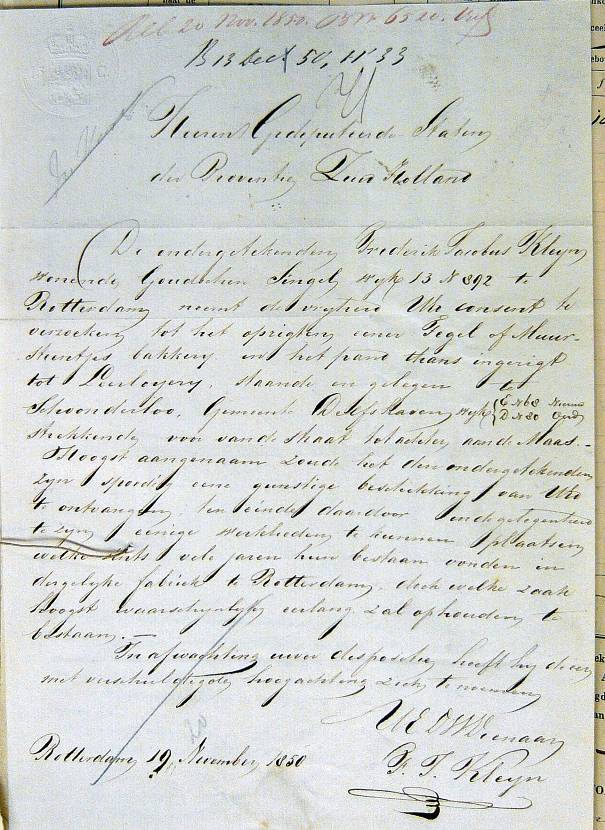 20 Nov. 1850.
B 13 Dec 50, N 33
Heeren Gedeputeerde Staten
der Provintie Zuid Holland
De ondergetekende Frederik Jacobus Kleyn
wonende Goudschen Singel wyk 13 N 892 te
Rotterdam neemt de vryheid UEd consent te
verzoeken tot het oprigten eener Tegel of Muur-
steentjes bakkery in het pand thans ingerigt
tot Leerloyery, staande en gelegen te
Schoonderloo, Gemeente Delfshaven wyk E N 68 Nieuw
D N 80 Oud
strekkende voor van de straat tot achter aan de Maas -
Hoogst aangenaam zoude het den ondergetekenden
zyn spoedig eene gunstige beschikking van UEd
te ontvangen; ten einde daardoor in de gelegenheid
te zyn eenige werklieden te kunnen plaatsen
welke vele jaren hun bestaan vonden in
dergelyke fabriek te Rotterdam, doch welke zaak
hoogst waarschynlyk eerlang zal ophouden te
bestaan. -
In afwachting uwer dispositie heeft hy de eer
met verschuldigde hoogachting zich te noemen
UEDWDienaar
Rotterdam 19 November 1850
F. J. Kleyn